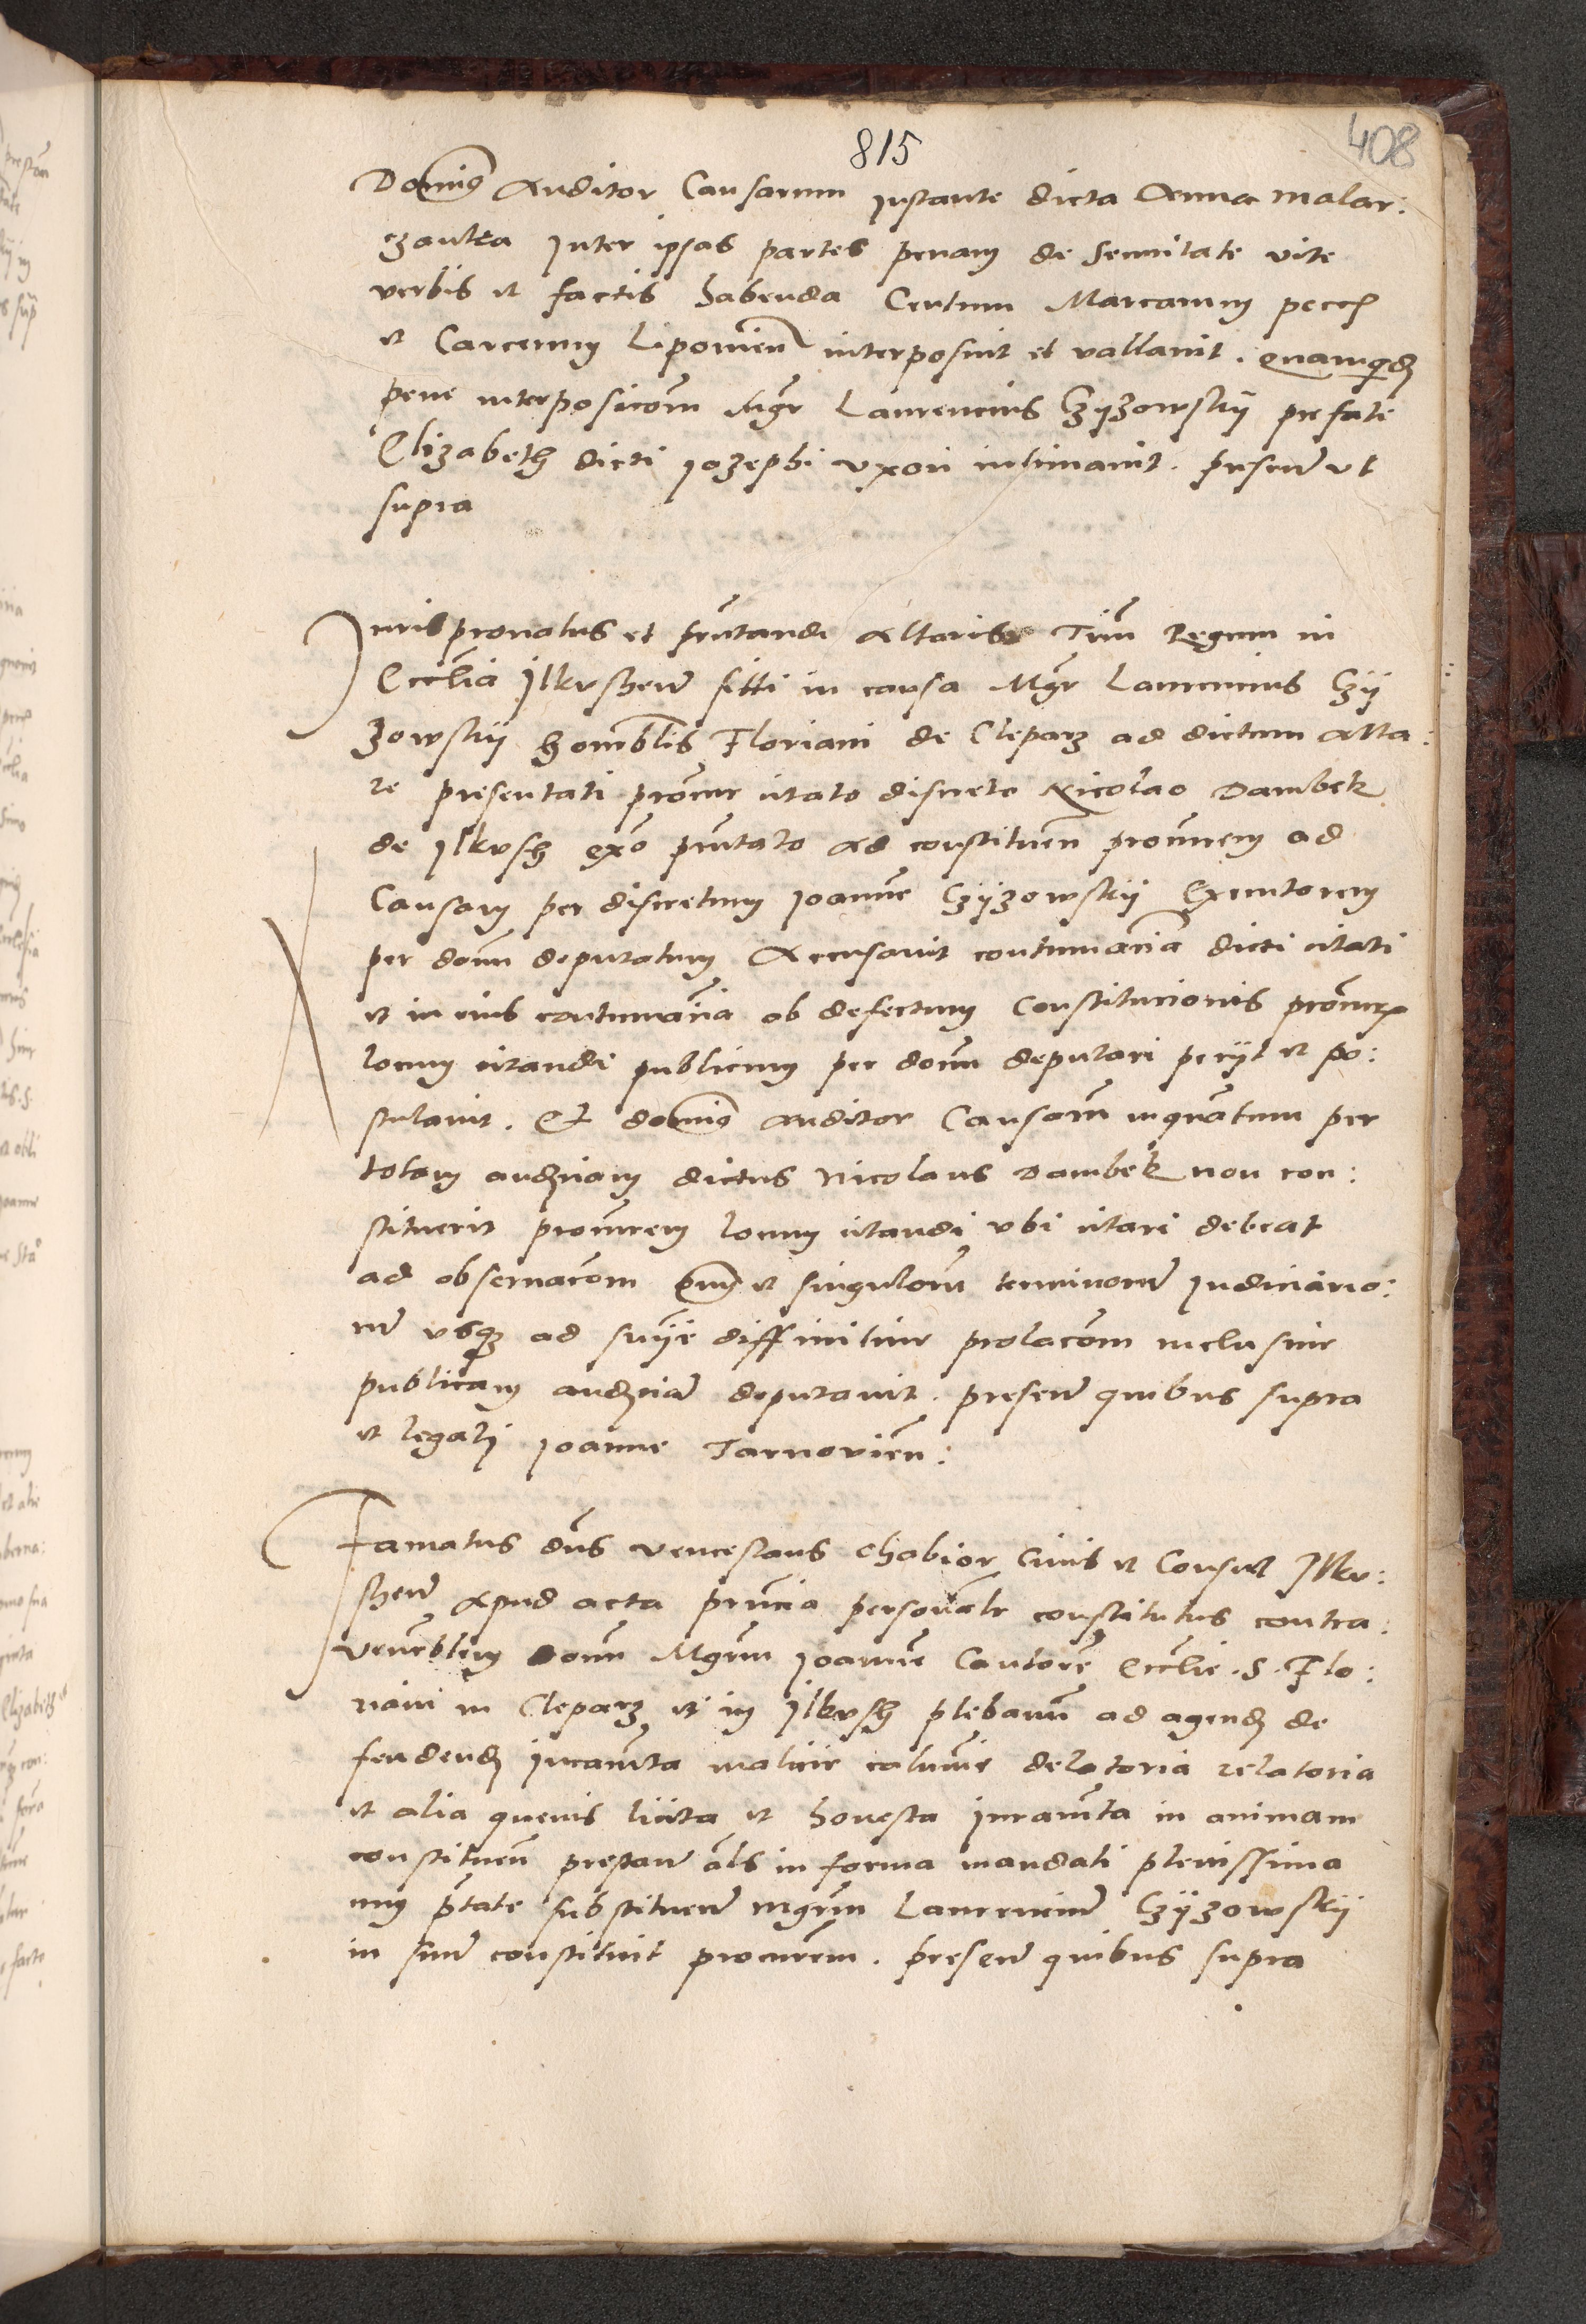 815
408
Domin9 Auditor Causarum Instante dicta Anna malar:
czantka Inter ipsas partes penam de securitate vite
verbis et factis habenda Centum Marcarum pecc
et Carcerum Lipouien interposuit et vallauit. quamquid
pene interposicom Mgr Laurencius Czyzowskij prefate
Elizabeth dicti Jozephi vxori intimauit. presen vt
supra
Juris pronatus et prntandi Altaris Trium Regum in
Ecclia Ilkushen siti in causa Mgr Laurencius Czy
zowskij honorblis Floriani de Cleparz ad dictum Alta:
re presentati procur citato discreto Nicolao Dambek
de Ilkusch exo prntato Ad constituen procurem ad
Causam per discretum Joanne Czyzowskij Executorem
per donm deputatum Accusauit contumacia dicti citati
et in eius contumacia ob defectum Constitucionis procur
locum citandi publicum per donm deputari peciit et po:
stulauit. Et domin9 auditor Causarum inquantum per
totam audnciam dictus Nicolaus Dambek non con:
stituerit procurem locum citandi vbi citari debeat
ad obseruacom omniu et singulorum terminorum Judiciario:
rum vsq ad snie diffinitiue prolacom inclusiue
publicam audncia deputauit. presen quibus supra
et legali Joanne Tarnovien:
Famatus dns venceslaus Chabior Ciuis et Consul Ilku:
shen Apud acta prncia personalr constitutus contra:
venerblem donm Mgrum Joanne Cantore Ecclie. S. Flo:
riani in Cleparz et in Ilkusch plebanum ad agend de
fendend Juramta malicie calumie delatoria relatoria
et alia queuis licita et honesta Juramta in animam
constituen prestan als in forma mandati plenissima
cum ptate substituen mgrum Laurenciu Czyzowskij
in suum constituit procurem. presen quibus supra